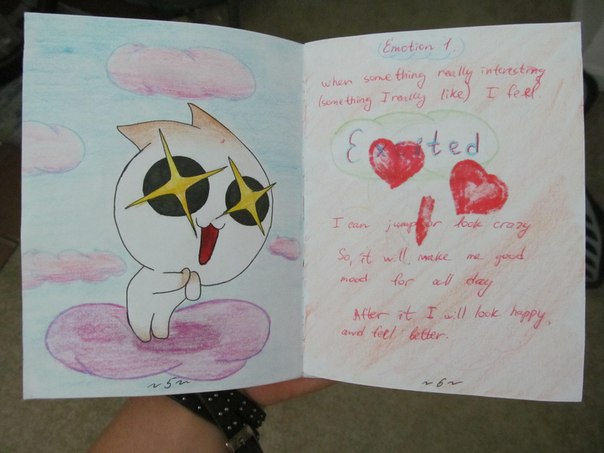 Emotion 1.
when something really interesting
(something I really like) I feel
Excited
I can jump or look crazy
So, it will make me good
mood for all day
After it, I will look happy,
and feel better.
~5~
~6~